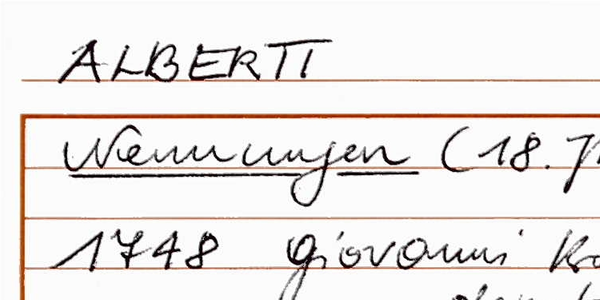 ALBERTI
Nennungen (18.
1748 Giovanni